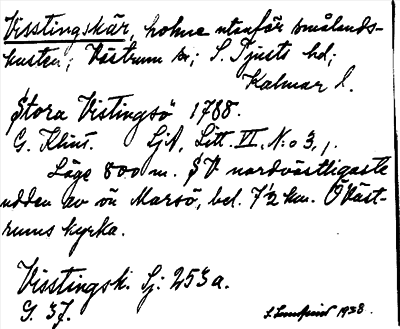 Visstingskär, holme utanför smålands-
kusten; Västrum sn; S. Tjusts hd;
Kalmar l.
Stora Vistingsö 1788.
G. Klint. Lj A, Litt. VI, N:o 3, 1.
Läge 800 m. SV nordvästligaste
udden av ön Marsö, bel. 7 1/2 km. Ö Väst-
rums kyrka.
Visstingsk. Lj: 253a.
G. 37.
1938.